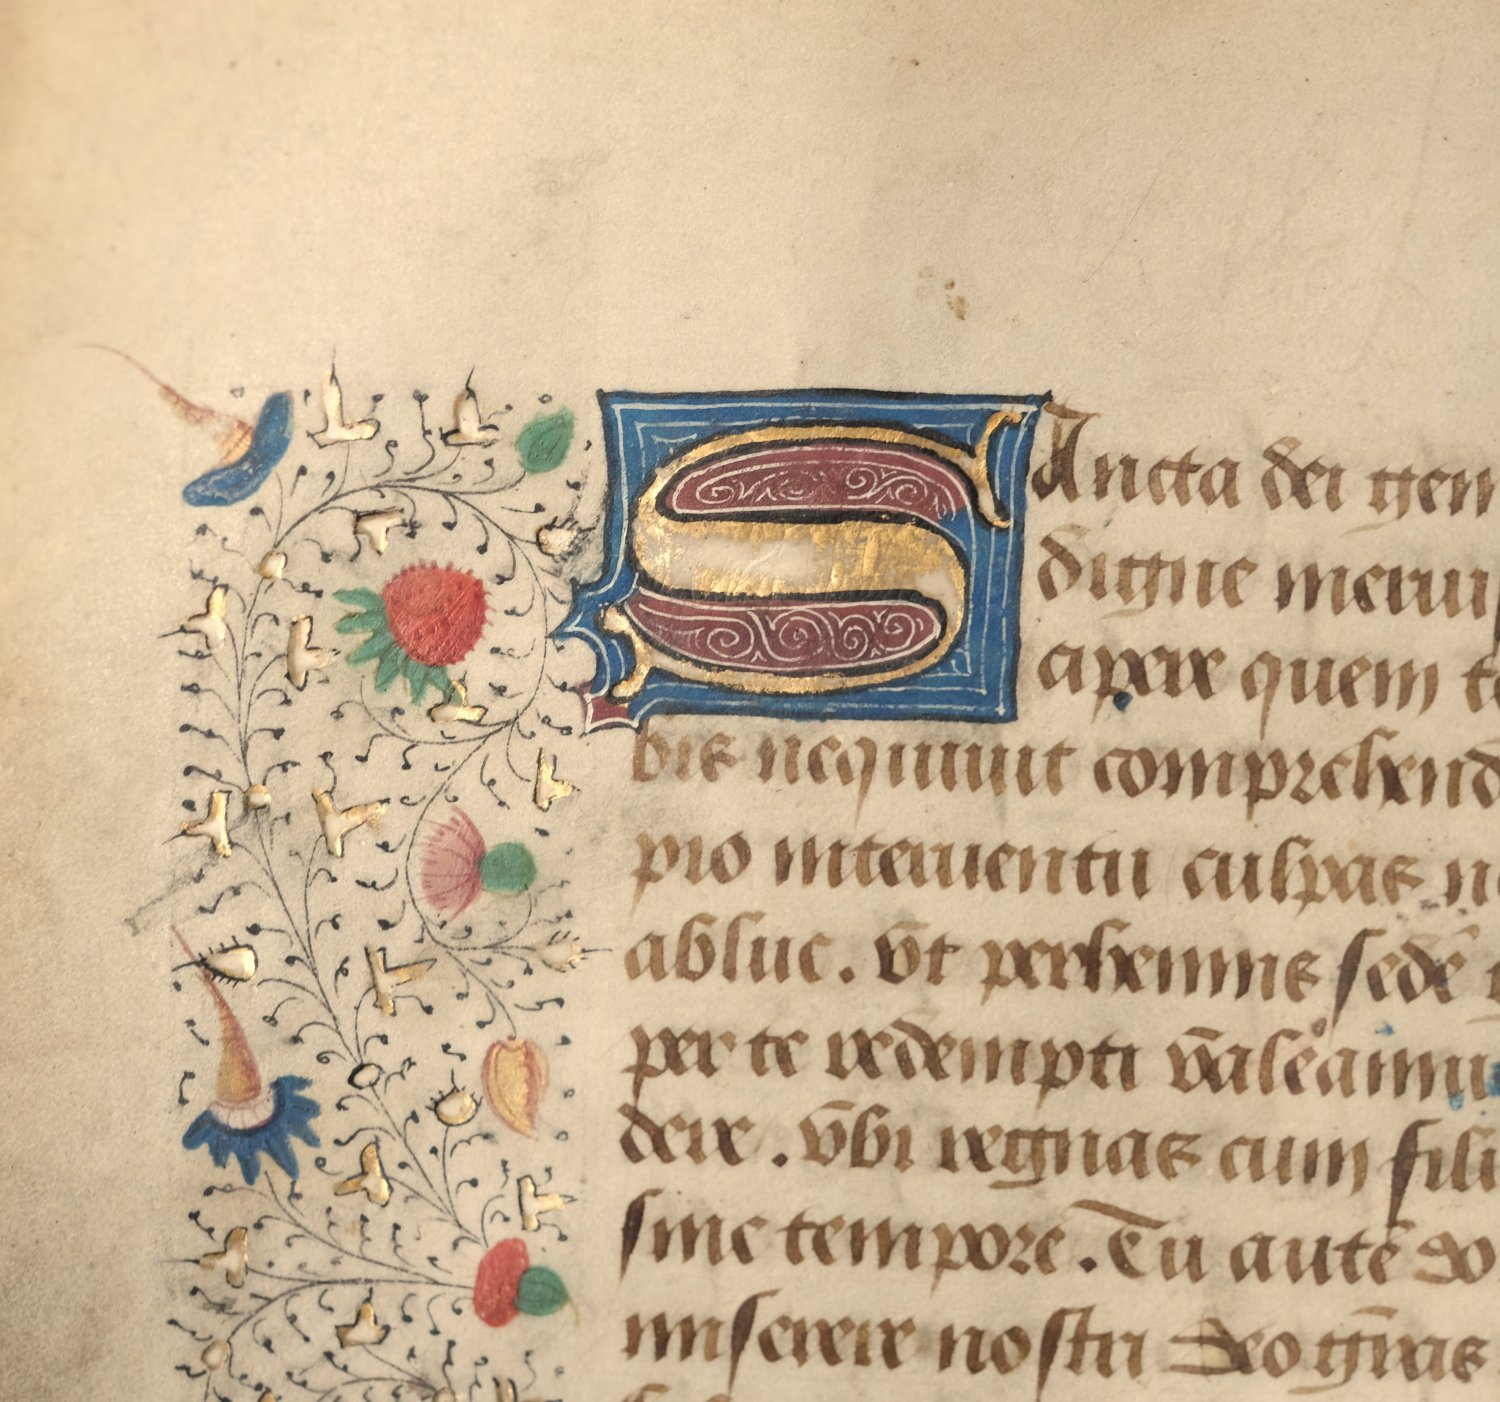 SAncta dei gen
digne merui
apere quem to
bis nequiuit comprehend
pro interuentu culpas n
ablue. vt perhennis sedē
per te redempti valeamu
dere. vbi regnas cum fili
sine tempore. Tu autē do
miserere nostri deo gr̄as